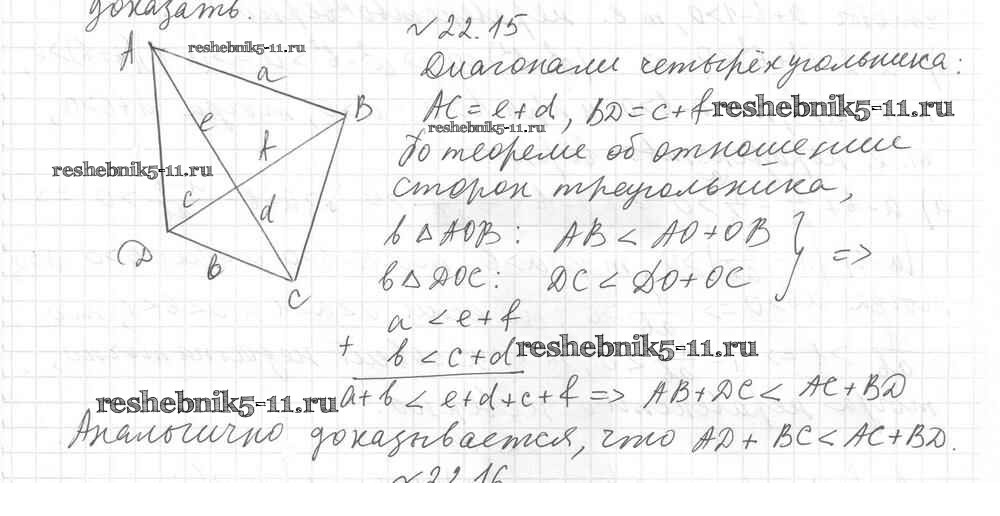 доказать.
№22.15
Диагонали четырёхугольника:
AC = e+d, BD = c+f
По теореме об отношении
сторон треугольника,
в △AOB: AB < AO+OB
в △DOC: DC < DO+OC } =>
a < e+f
+ b < c+d
a+b < e+d+c+f => AB+DC < AC+BD
Аналогично доказывается, что AD+BC < AC+BD.
№22.16
A
a
B
e
f
c
d
D
b
C
reshebnik5-11.ru
reshebnik5-11.ru
reshebnik5-11.ru
reshebnik5-11.ru
reshebnik5-11.ru
reshebnik5-11.ru